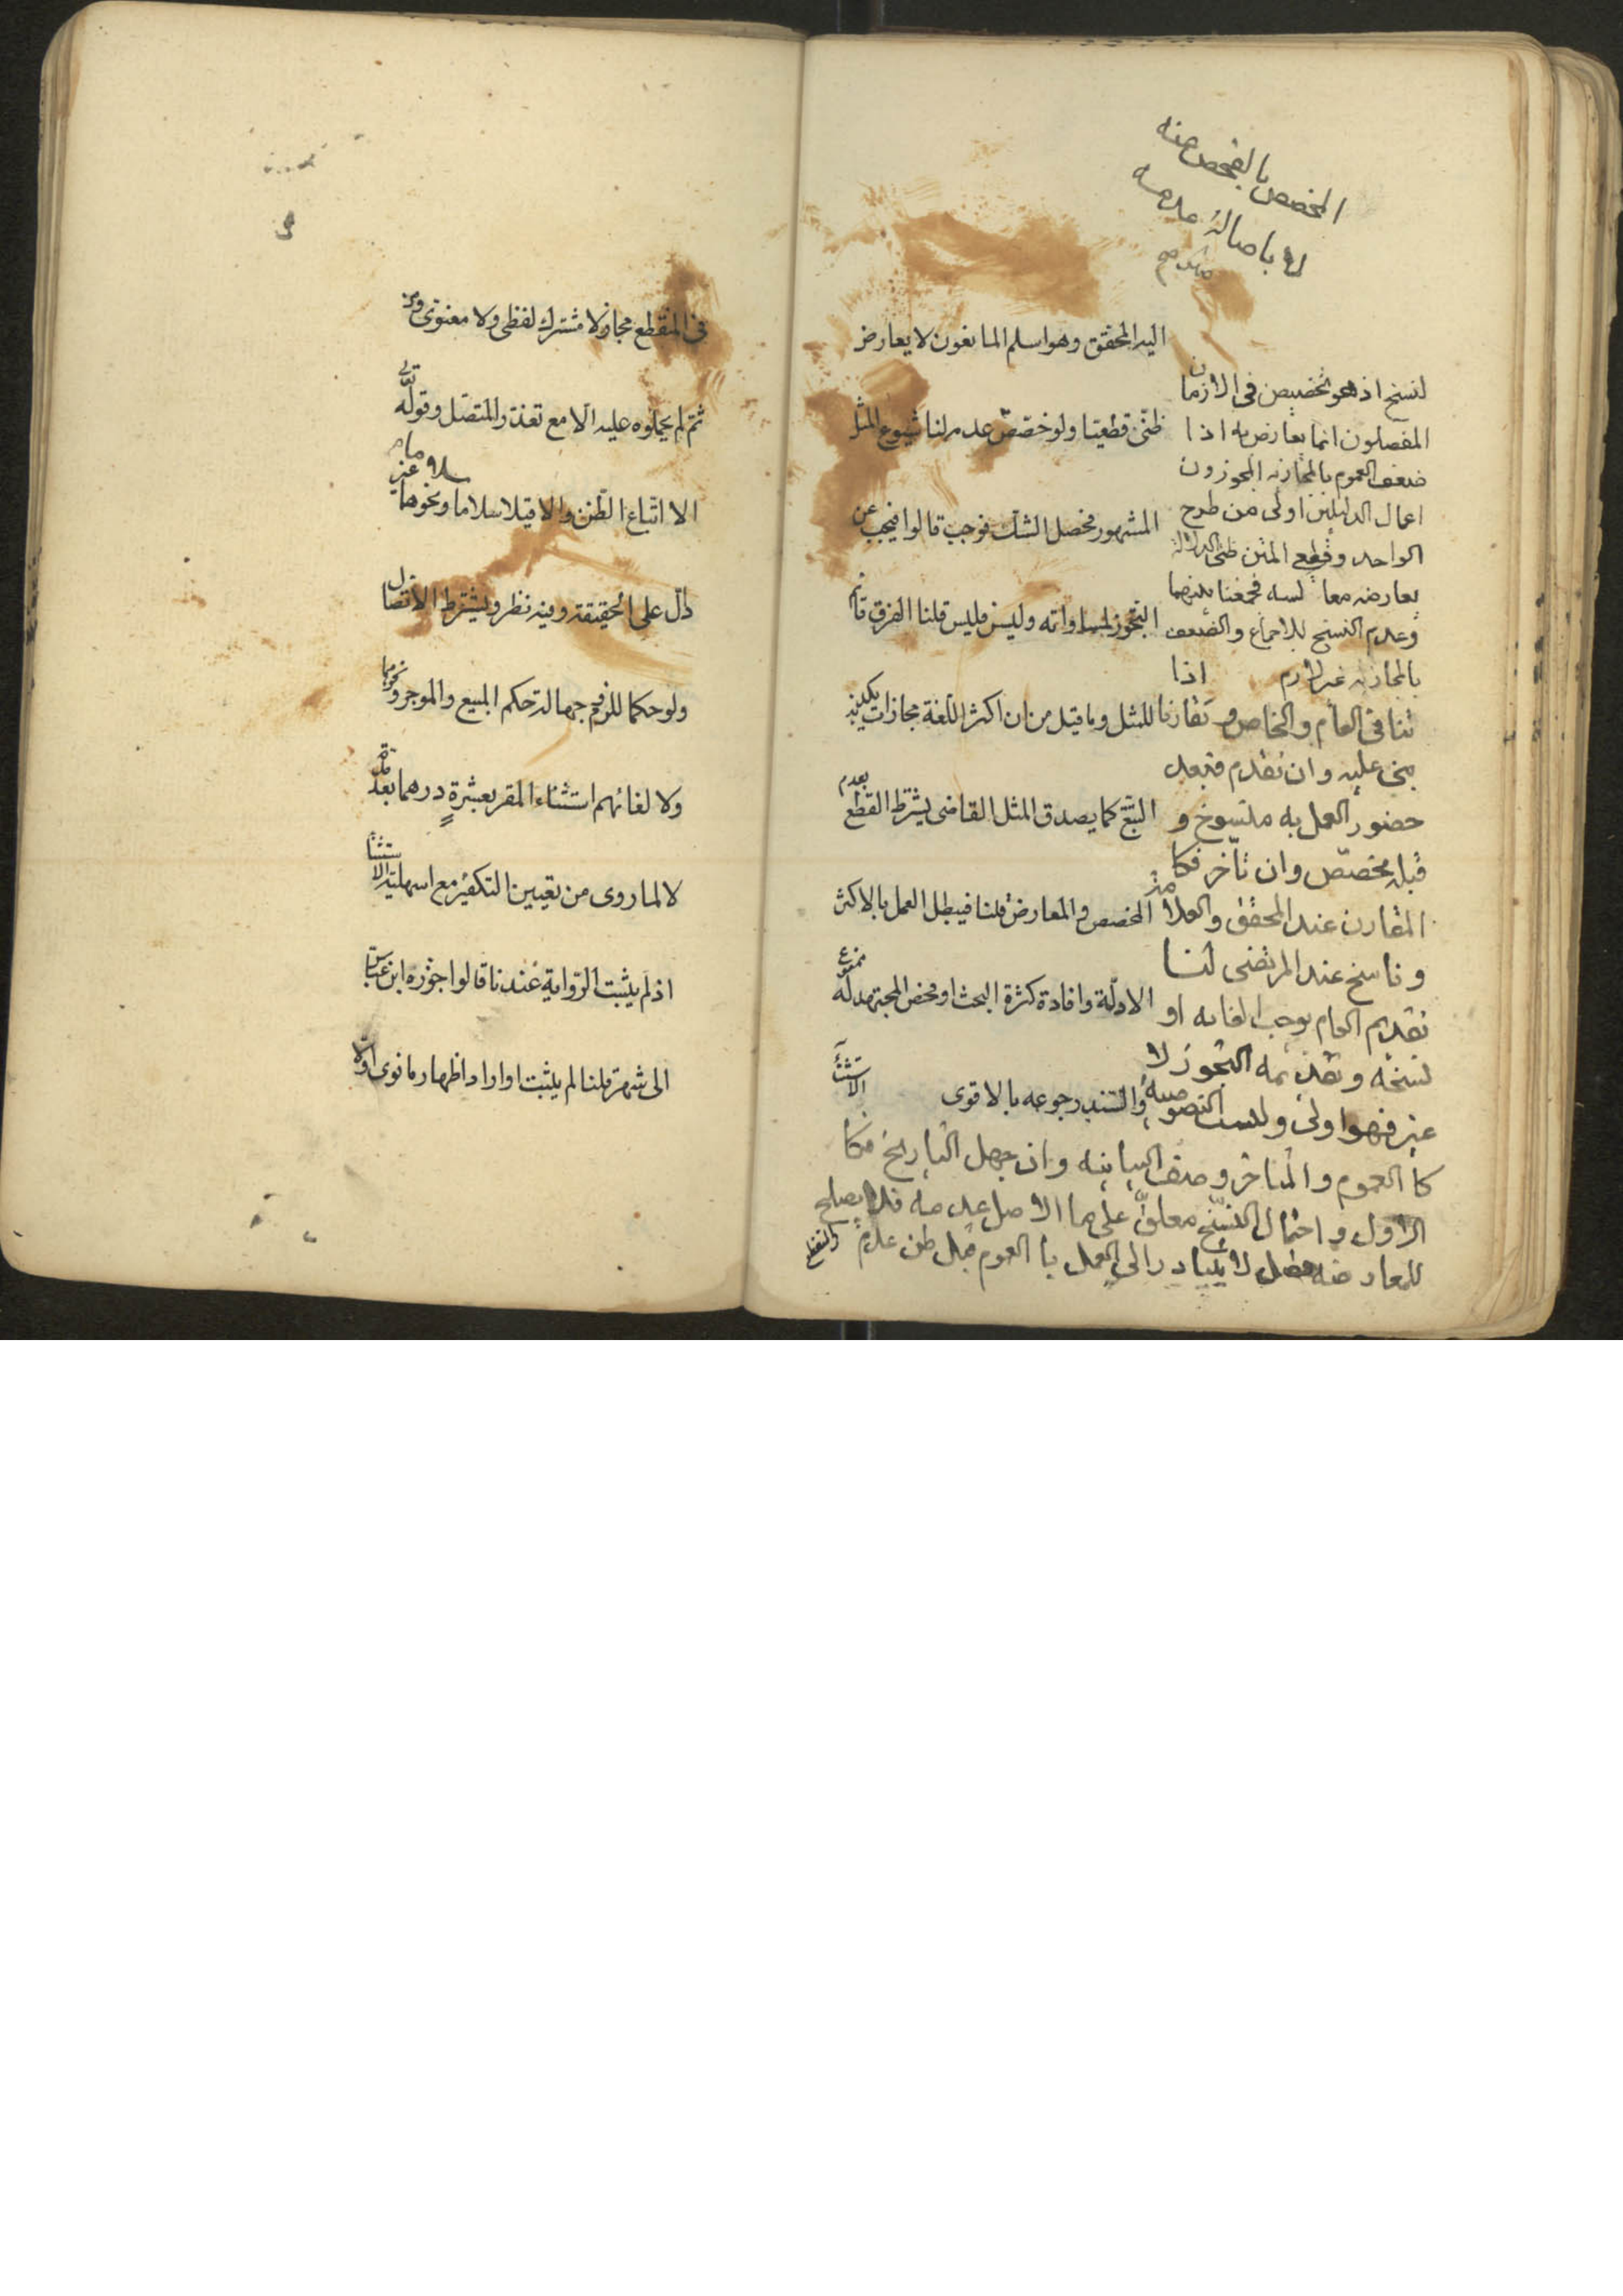 اليه المحقق وهو اسلم المانعون لا يعارض
ظنّى قطعيّا ولو خصّص عدم لنا شيوع المثل
المشهور فحصل الشك فوجب قالوا فيجب عن
التجوز لمساواته وليس فليس قلنا الفرق قائم
للمثل وما قيل من ان اكثر اللغة مجازات يكذبه
التتبّع كما يصدق المثل القاضى يشترط القطع بعدم
المخصص والمعارض قلنا فيبطل العمل بالاكثر
الادلّة وافادة كثرة البحث او فحص المجتهد له ممنوع
والسند رجوعه بالاقوى الاستثنآء
لنسخ اذ هو تخصيص فى الازمان
المفصلون انما يعارض به اذا
ضعف العموم بالمجازية المجوزون
اعمال الدليلين اولى من طرح
الواحد وقطعى المتن ظنى الدلالة
يعارضه معا لسه فجمعنا بينهما
وعدم النسخ للاجماع والضعف
بالمجازية غير لازم اذا
تنافى العام والخاص و تقارنا
بنى عليه وان تقدم فبعد
حضور العمل به منسوخ و
قبله مخصّص وان تأخر فكا
المقارن عند المحقق والعلامة
وناسخ عند المرتضى لنا
تقديم العام يوجب الغائه او
نسخه وتقديمه التجوز لا
غير فهو اولى وليست النصوصية
كا العموم والمتاخر وصف البيانيه وان جهل التاريخ فكا
الاول واحتمال النسخ معلق على ما الاصل عدمه فلا يصلح
للمعارضه فصل لا يتبادر الى العمل با العموم قبل ظن عدم
المخصص بالفحص عنه
لا باصالة عدمه
فى المنقطع مجاز لا مشترك لفظى ولا معنوى ومن
ثم لم يحملوه عليه الّا مع تعذر المتصل وقوله تعالى
الا اتباع الظنّ والا قيلا سلاما سلاما ونحوهما غير
دلّ على الحقيقة وفيه نظر ويشترط الاتصال
ولو حكما للزوم جهالة حكم المبيع والموجر ونحوهما
ولا لغائهم استثناء المقر بعشرةٍ درهما بعد مدة
لا لما روى من تعيين التكفير مع اسهلية الاستثنا
اذ لم يثبت الرّواية عندنا قالوا جوّزه ابن عباس
الى شهر قلنا لم يثبت او اراد اظهار ما نوى اوّلا